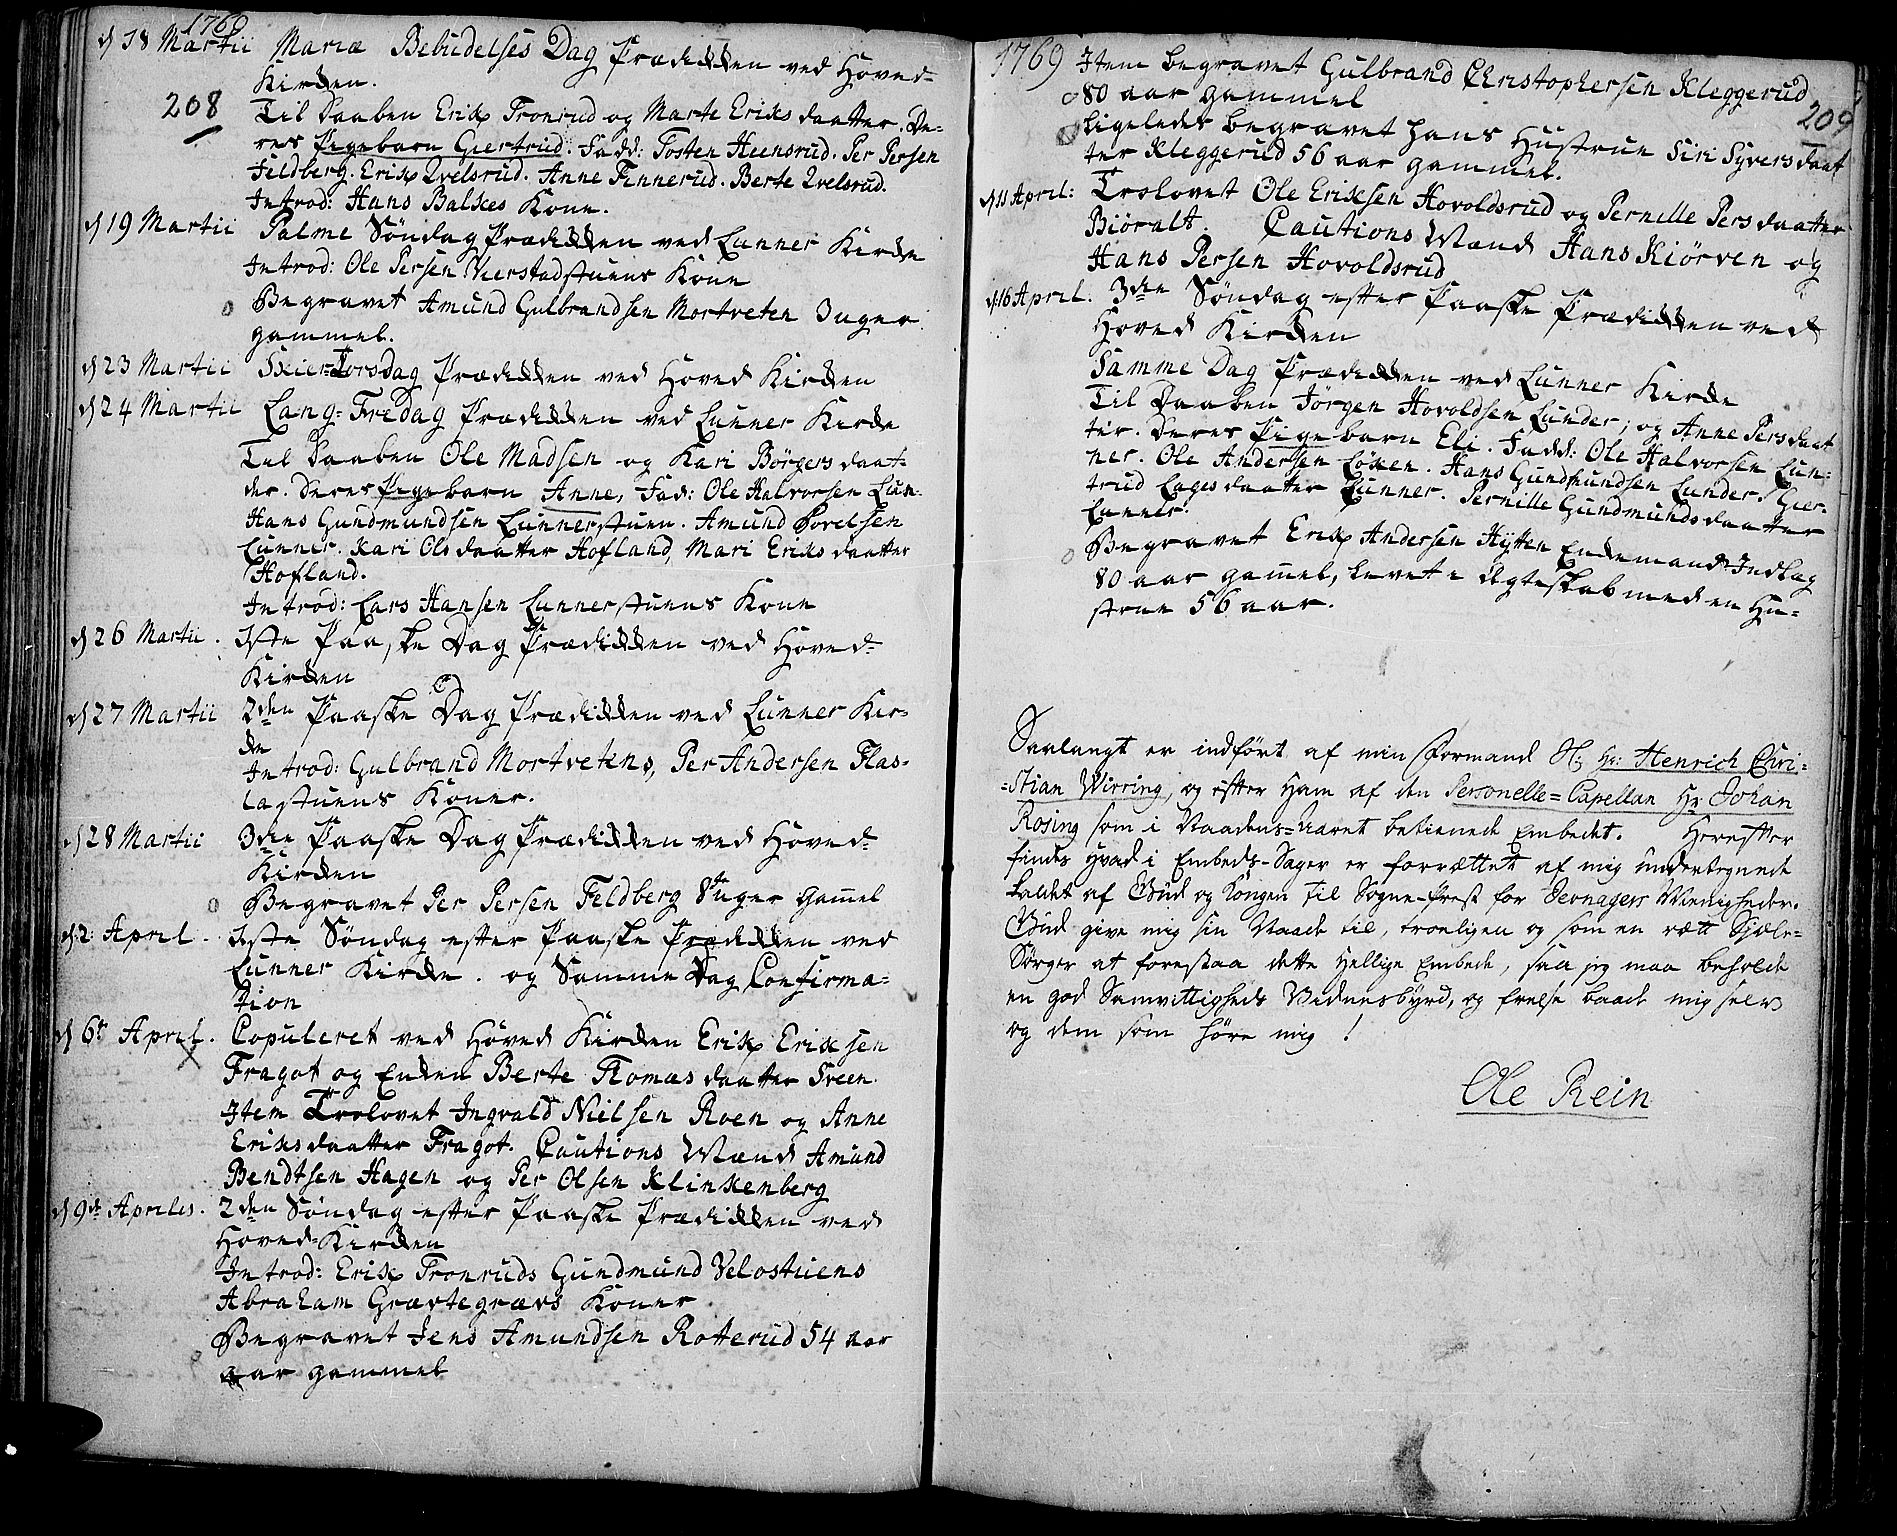 1769
d 18 Martii Mariæ Bebudelses Dag Prædikken ved Hoved-
Kirken.
208
Til Daaben Erik Tronrud og Marte Eriks daatter. De-
res Pigebarn Giertrud. Fadd: Tosten Heensrud. Per Persen
Feldberg. Erik Qvelsrud. Anne Finnerud. Berte Qvelsrud.
Introd: Hans Balkes Kone.
d 19 Martii Palme Søndag Prædikken ved Lunner Kirke
Introd: Ole Persen Vierstadstuens Kone
Begravet Amund Gulbrandsen Mortveten 3 uger
gammel.
d 23 Martii Skier-Torsdag Prædikken ved Hoved Kirken
d 24 Martii Lang-Fredag Prædikken ved Lunner Kirke
Til Daaben Ole Madsen og Kari Børgers daat-
ter. Deres Pigebarn Anne, Fad: Ole Halvorsen Lun.
Hans Gundmundsen Lunnerstuen. Amund Povelsen
Lunner. Kari Olsdaatter Hofland, Mari Eriks daatter
Hofland.
Introd: Lars Hansen Lunnerstuens Kone
d 26 Martii. 1ste Paaske Dag Prædikken ved Hoved-
Kirken
d 27 Martii 2den Paaske Dag Prædikken ved Lunner Kir-
ke
Introd: Gulbrand Mortvetens, Per Andersen Flas-
lastuens Koner.
d 28 Martii 3die Paaske Dag Prædikken ved Hoved-
Kirken
Begravet Per Persen Feldberg 8 uger gamel
d 2 April. 1ste Søndag efter Paaske Prædikken ved
Lunner Kirke. og Samme Dag Confirma-
tion
d 6te April. Copuleret ved Hoved Kirken Erik Eriksen
Fragot og Enken Berte Tomas daatter Sveen.
Item Trolovet Ingvald Nielsen Roen og Anne
Eriksdaatter Fragot. Cautions Mænd Amund
Bendtsen Hagen og Per Olsen Klinkenberg
d 9de Aprilis. 2den Søndag efter Paaske Prædikken ved
Hoved-Kirken
Introd: Erik Tronruds Gundmund Velostuens
Abraham Grævtegrævs Koner
Begravet Jens Amundsen Rotterud 54 aar
aar gammel
1769 Item begravet Gulbrand Christophersen Kleggerud
80 aar gammel
209
Ligeledes begravet hans Hustrue Siri Syversdaat
ter Kleggerud 56 aar gammel.
d 11 April: Trolovet Ole Eriksen Hovoldsrud og Pernille Persdaatter
Biøralt. Cautions Mænd Hans Kiørven og
Hans Persen Hovoldsrud
d 16 April. 3die Søndag efter Paaske Prædikken ved
Hoved Kirken
Samme Dag Prædikken ved Lunner Kirke
Til Daaben Jørgen Hovoldsen Lunder, og Anne Persdaat
ter. Deres Pigebarn Eli. Fadd: Ole Halvorsen Lun-
ner. Ole Andersen Løken. Hans Gundmundsen Lunder. Gier-
trud Lagesdaatter Lunner. Pernille Gundmundsdaatter
Lunner.
Begravet Erik Andersen Hytten Enkemand Indlag
80 aar gamel, levet i Ægteskab med en Hu-
strue 56 aar.
Saalangt er indført af min Formand H: Hr: Henrich Chri-
stian Wirring, og efter Ham af den Personelle-Capellan Hr Johan
Rosing som i Naadens-Aaret betienede Embedet. Herefter
findes hvad i Embeds-Sager er forrættet af mig underteignede
kaldet af Gud og Kongen til Sogne-Prest for Jevnagers Menigheder.
Gud give mig sin Naade til, troeligen og som en rett Sjæle-
Sørger at forestaa dette Hellige Embede, saa jeg maa beholde
en god Samvittigheds Vidnesbyrd, og frelse baade mig selv
og dem som høre mig!
Ole Rein